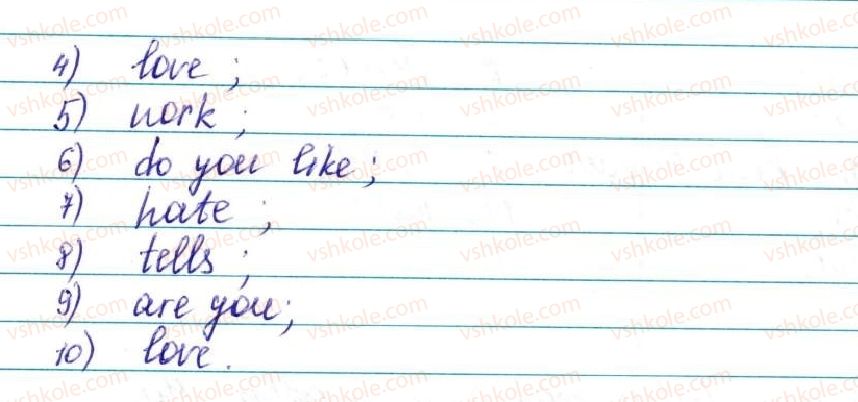 4) love;
5) work;
6) do you like;
7) hate;
8) tells;
9) are you;
10) love.